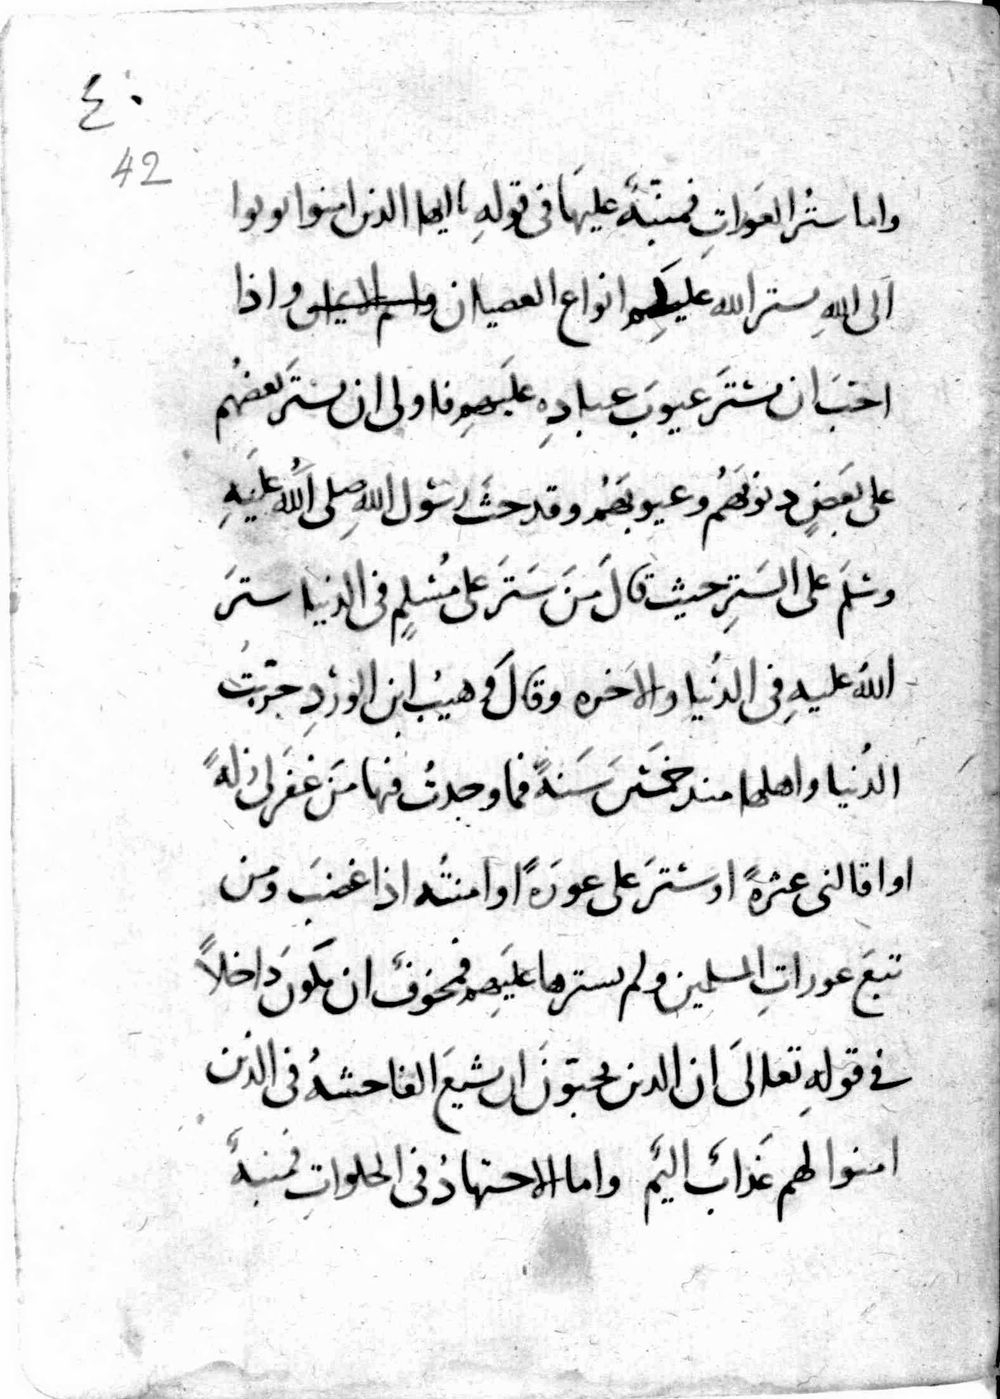 ٤٠
42
واما سَتْرُ العَوَراتِ فمنبّهٌ عليهَا فى قوله يا ايها الذين امنوا توبوا
الى اللهِ يستر الله عليكم انواع العصيان واسم الايمان واذا
احبَ ان يستَرَ عيوبَ عبادِهِ عليَهمِ فاولى ان يسترَ بعضُهم
على بعَضٍ ذنوبَهُم وعيوبَهُم وقد حثَ رسُول اللهِ صلى اللَّه عليَهِ
وسَلم على السَترِ حيث قالَ مَنَ سَتَرَ على مُسْلمٍ فى الدنيا سترَ
اللهُ عليهِ فى الدُنيا والاخره وقال وهيبُ ابن الورْدِ جرّبتُ
الدُنيا واهلها منذ خمسَينَ سَنهً فما وجدتُ فيها مَنَ غفَرَ لى زلهً
او اقالنى عثرةً او سترَ على عورَةً او امنتُه اذا غضبَ ومن
تتبعَ عوراتِ المسلمين ولم يسترها عليَهم فمخوفٌ ان يكونَ داخلاً
فى قولهِ تعالىَ ان الذين يحبّونَ ان تشيعَ الفاحشهُ فى الذين
امنوا لهم عَذابٌ اليمٌ واما الاجتهادُ فى الخلواتِ فمنبهٌ